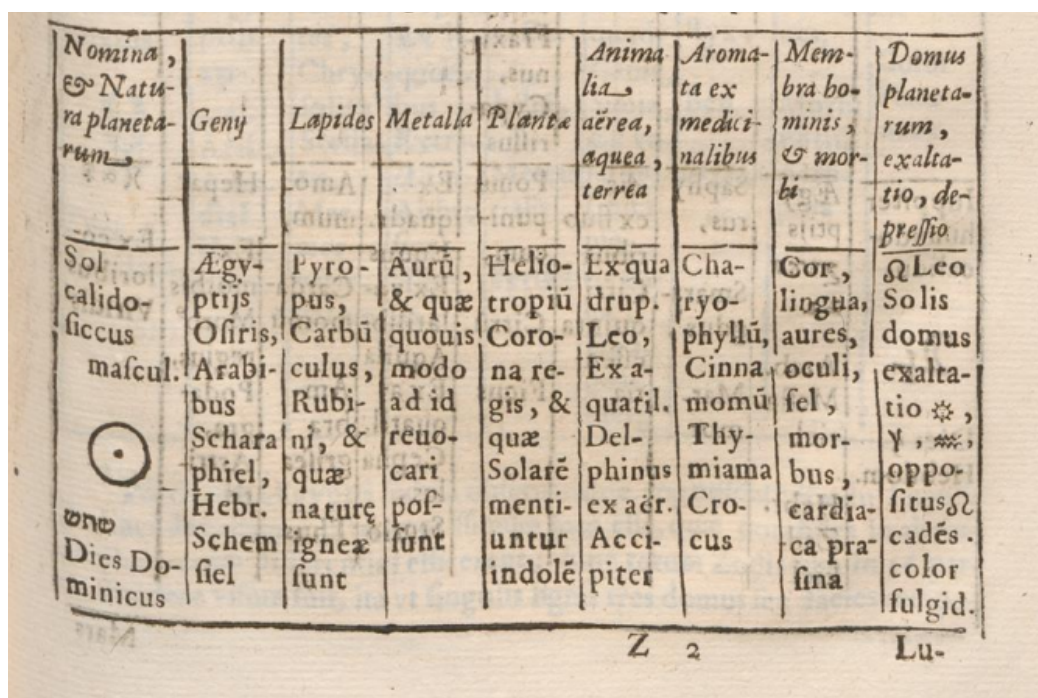 Nomina,
& Natu-
ra planeta-
rum
Genij
Lapides
Metalla
Plantæ
Anima
lia
aërea,
aquea,
terrea
Aroma-
ta ex
medici-
nalibus
Mem-
bra ho-
minis,
& mor-
bi
Domus
planeta-
rum,
exalta-
tio, de-
preſſio
Sol
calido-
ſiccus
maſcul.
☉
שמש
Dies Do-
minicus
Ægy-
ptijs
Oſiris,
Arabi-
bus
Schara
phiel,
Hebr.
Schem
ſiel
Pyro-
pus,
Carbū
culus,
Rubi-
ni, &
quæ
naturę
igneæ
ſunt
Aurū,
& quæ
quouis
modo
ad id
reuo-
cari
poſ-
ſunt
Helio-
tropiū
Coro-
na re-
gis, &
quæ
Solarē
menti-
untur
indolē
Ex qua
drup.
Leo,
Ex a-
quatil.
Del-
phinus
ex aër.
Acci-
piter
Cha-
ryo-
phyllū,
Cinna
momū
Thy-
miama
Cro-
cus
Cor,
lingua,
aures,
oculi,
fel,
mor-
bus,
cardia-
ca pra-
ſina
♌ Leo
Solis
domus
exalta-
tio ☼,
♈, ♒,
oppo-
ſitus ♌
cadēs.
color
fulgid.
Z 2
Lu-